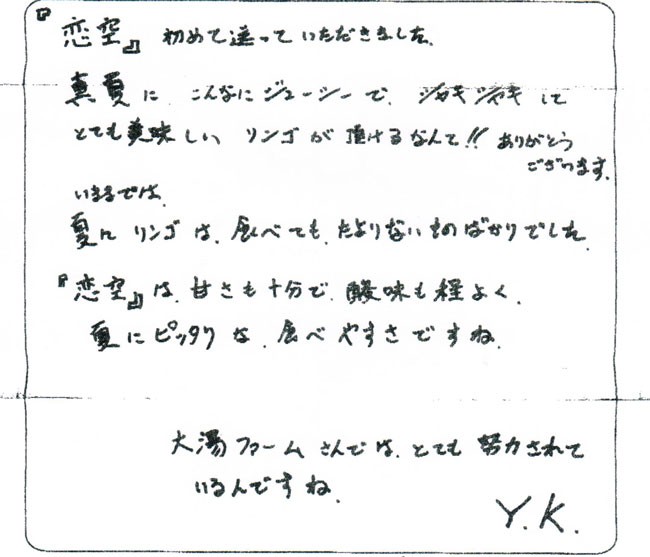 『恋空』初めて送って いただきました。
真夏に、こんなにジューシーで、シャキシャキして
とても美味しい リンゴが 頂けるなんて!! ありがとう
ございます。
いままでは、
夏にリンゴは、食べても、たよりないものばかりでした。
『恋空』は、甘さも十分で、酸味も程よく、
夏にピッタリな、食べやすさですね。
大湯ファームさんでは、とても努力されて
いるんですね。
Y.K.